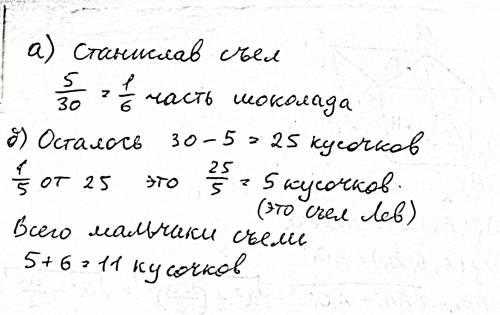 а) Станислав съел
5/30 = 1/6 часть шоколада
б) Осталось 30 - 5 = 25 кусочков
1/5 от 25 это 25/5 = 5 кусочков.
(это съел Лев)
Всего мальчики съели
5 + 6 = 11 кусочков